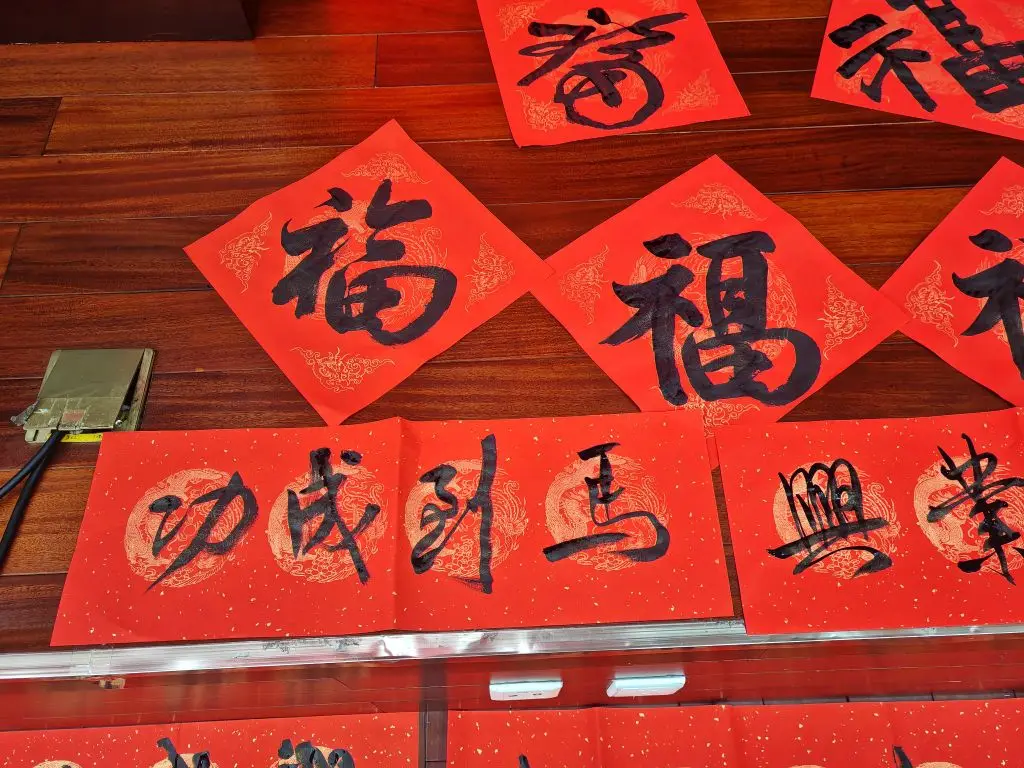 福
福 福
马到成功
業興